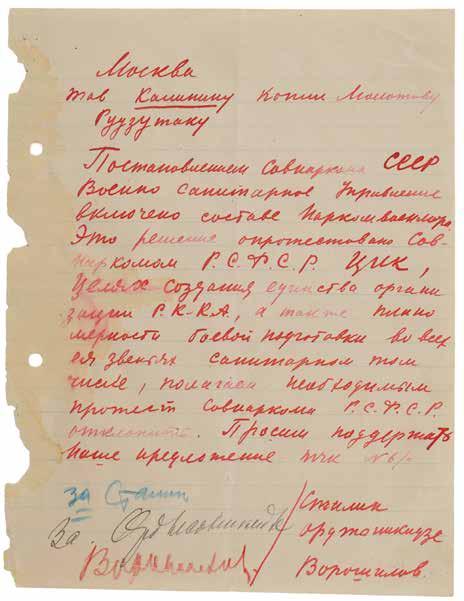 Москва
тов Калинину копии Молотову
Рудзутаку
Постановлением Совнаркома СССР
Военно санитарное Управление
включено составе Наркомвоенмора.
Это решение опротестовано Сов-
наркомом Р.С.Ф.С.Р. ЦИК,
Целях создания единства органи
зации Р.К.К.А, а также плано
мерности боевой подготовки во всех
ея звеньях санитарном том
числе, полагаем необходимым
протест Совнаркома Р.С.Ф.С.Р.
отклонить. Просим поддержать
наше предложение тчк
за Сталин
За. Орджоникидзе
Ворошилов.
Сталин
Орджоникидзе
Ворошилов.